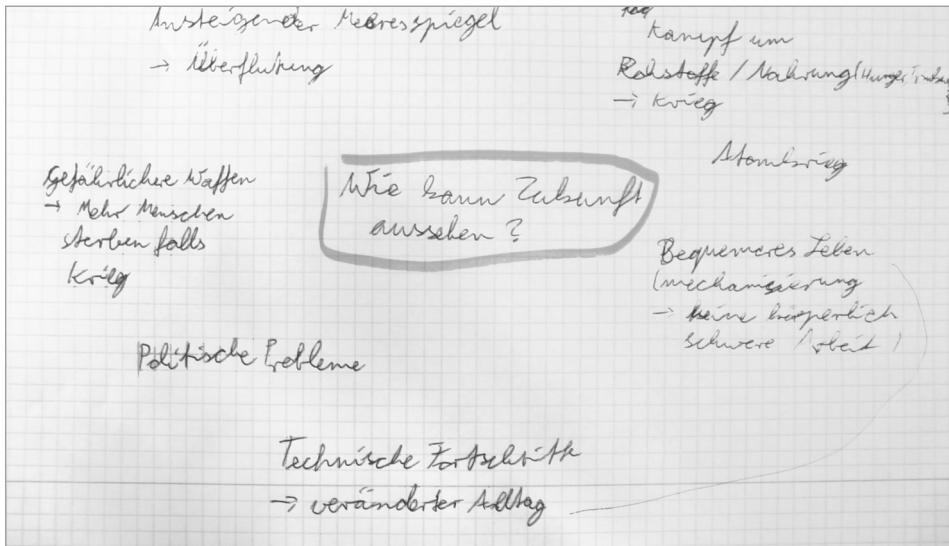 Ansteigender Meeresspiegel
→ Überflutung
Kampf um
Rohstoffe / Nahrung (Hunger
→ Krieg
Atomkrieg
Gefährlichere Waffen
→ Mehr Menschen
sterben falls
Krieg
Wie kann Zukunft
aussehen?
Bequemeres Leben
(mechanisierung
→ keine körperlich
schwere Arbeit)
Politische Probleme
Technische Fortschritte
→ veränderter Alltag